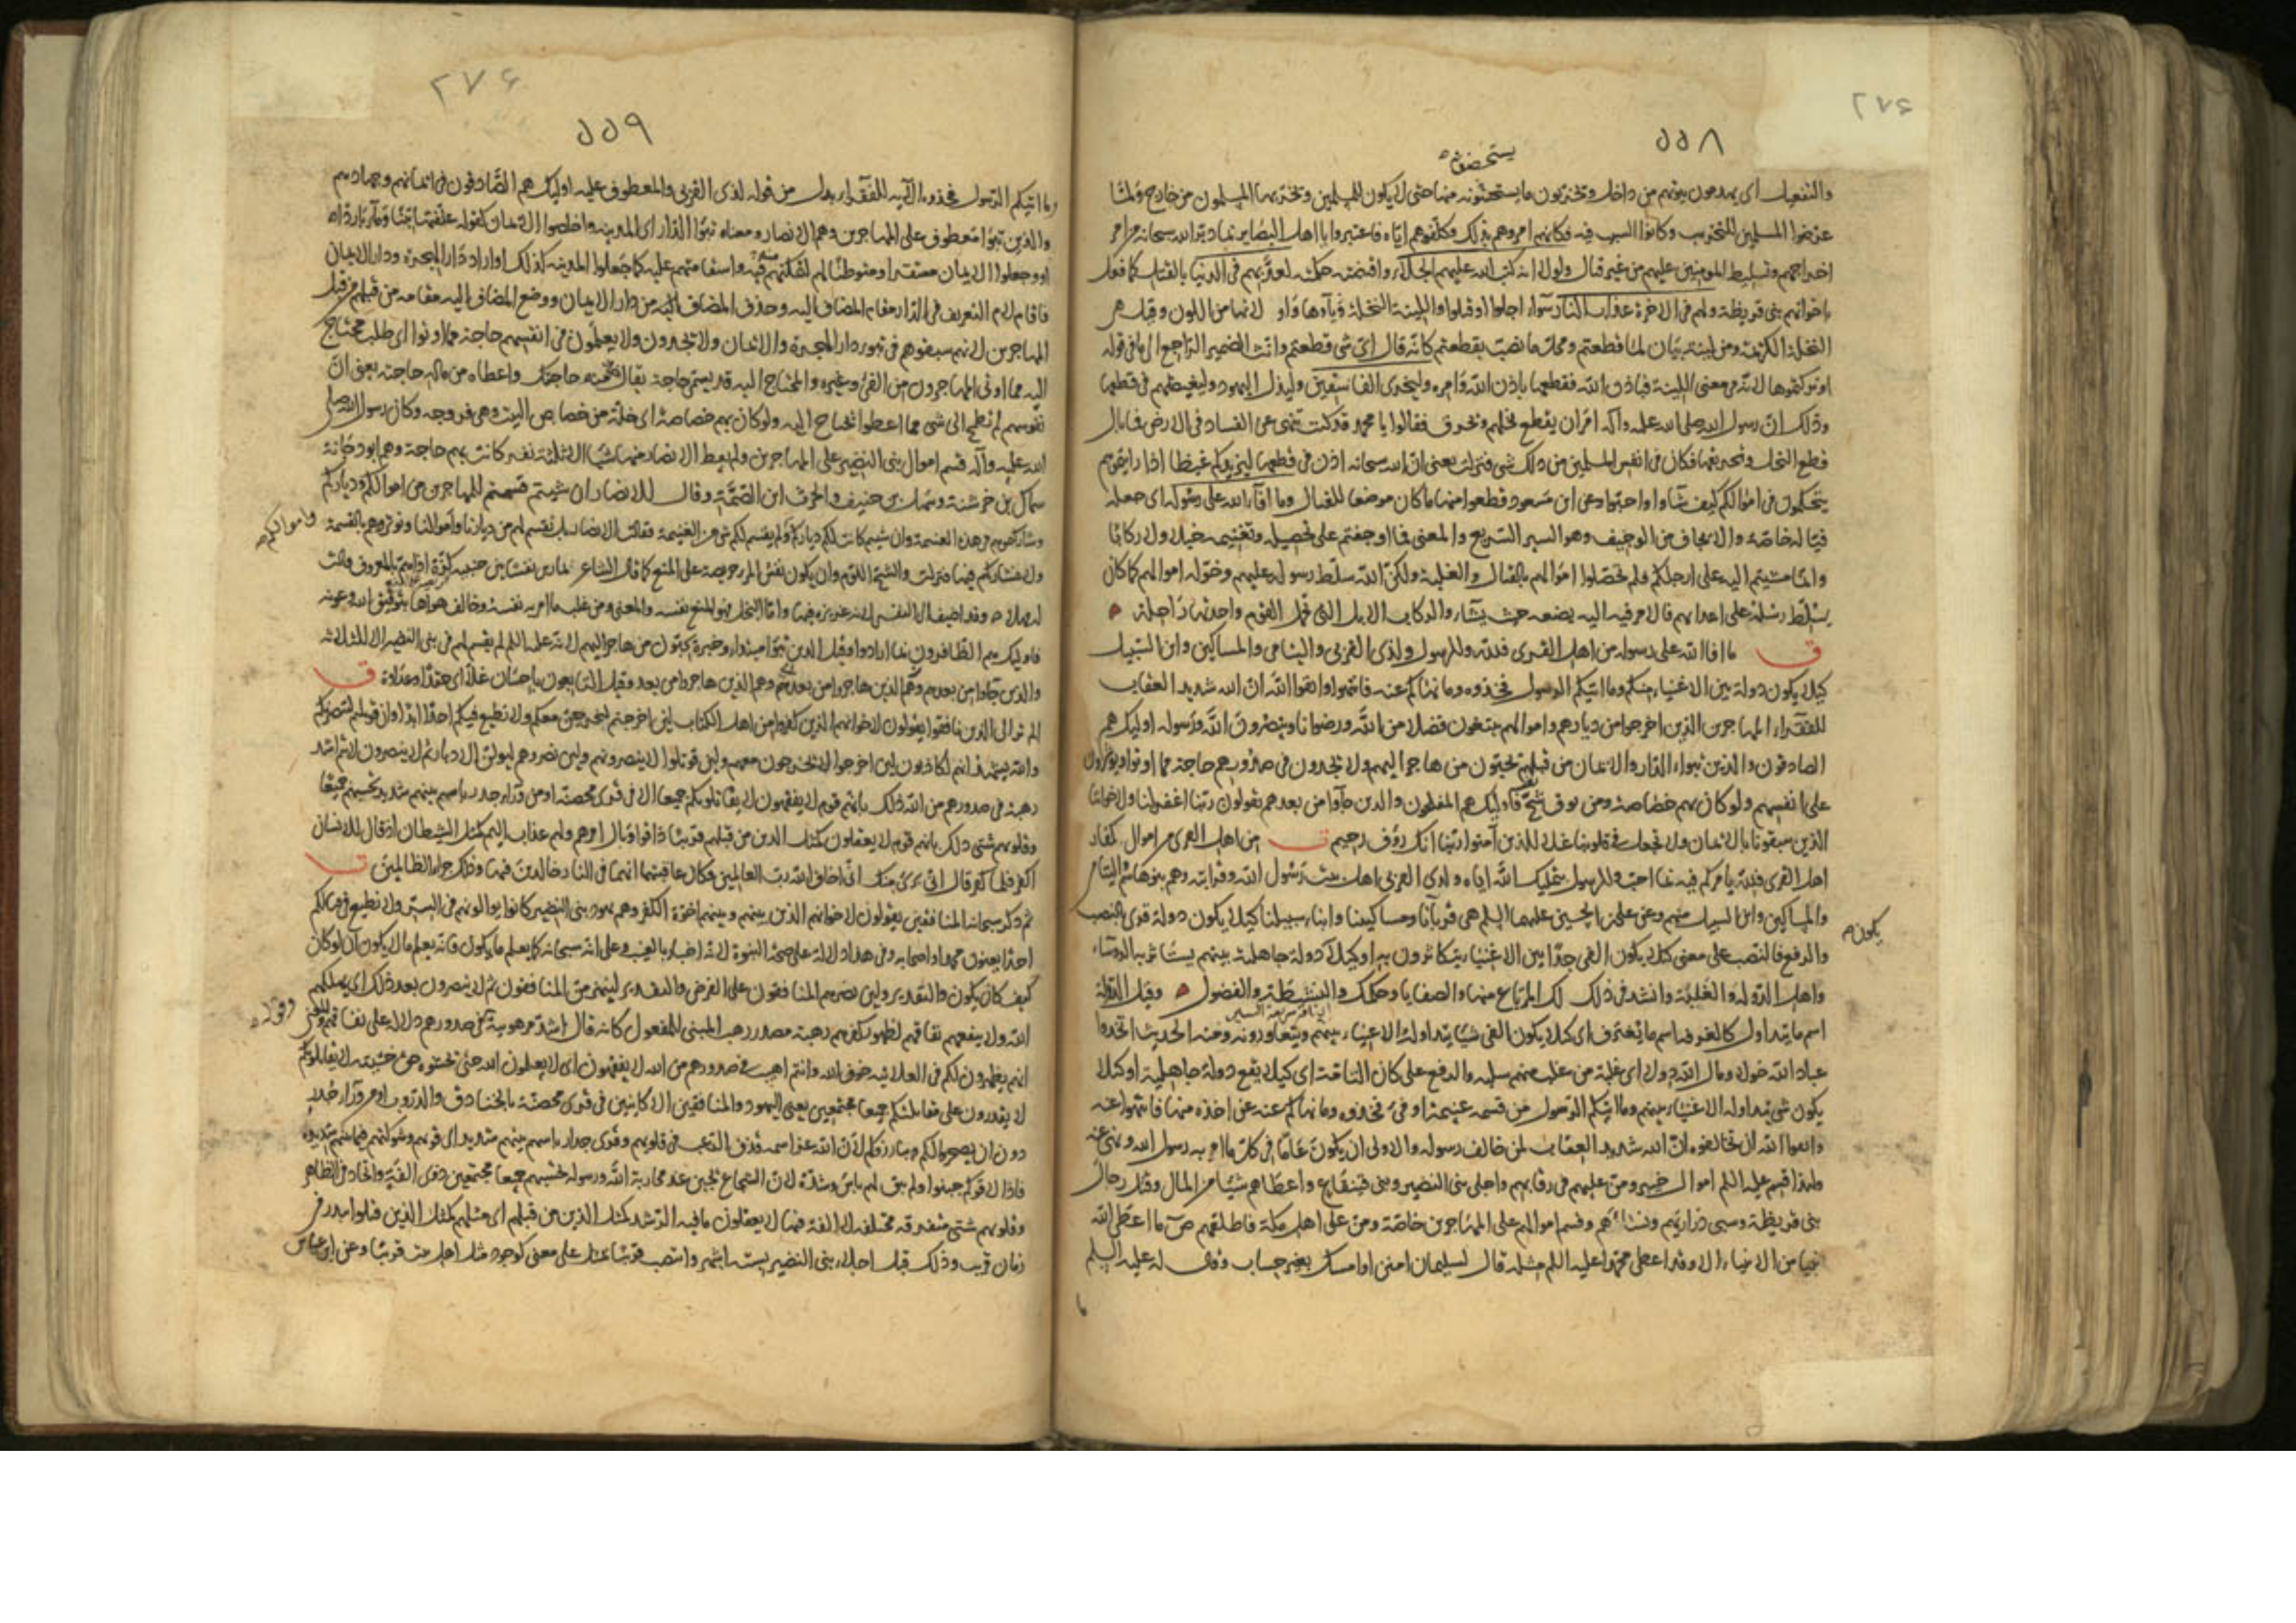 ٢٧٤
٥٥٨
والتفعيل اى يهدمون بيوتهم من داخل ويخربون ما يستحسنونه منها حتى لا يكون للمسلمين ويخربها المسلمون من خارج ولما
عرضوا المسلمين للتخريب وكانوا السبب فيه فكانهم امروهم بذلك وكلفوهم اياه فاعتبروا يا اهل البصاير بما دبر الله سبحانه من امر
اخراجهم وتسليط المومنين عليهم من غير قتال ولولا انه كتب الله عليهم الجلاء واقتضته حكمته لعذبهم فى الدنيا بالقتل كما فعل
باخوانهم بنى قريظة ولهم فى الاخرة عذاب النار سواء اجلوا او قتلوا واللينة النخلة وياءها واو لانها من اللون وقيل هى
النخلة الكريمة ومن لينة بيان لما قطعتم ومحل ما نصب بقطعتم كانه قال اى شى قطعتم وانث الضمير الراجع الى ما فى قوله
او تركتموها لانه فى معنى اللينة فباذن الله فقطعها باذن الله وامره وليخزى الفاسقين وليذل اليهود وليغيظهم فى قطعها
وذلك ان رسول الله صلى الله عليه واله امر ان يقطع نخلهم وتحرق فقالوا يا محمد قد كنت تنهى عن الفساد فى الارض فما بال
قطع النخل وتحريقها فكان فى انفس المسلمين من ذلك شى فنزلت يعنى ان الله سبحانه اذن فى قطعها ليزيدكم غيظا اذا رايتموهم
يتحكمون فى اموالكم كيف شاوا واحبوا وعن ابن مسعود قطعوا منها ما كان موضعا للقتال وما افاء الله على رسوله اى جعله
فيئا له خاصة والايجاف من الوجيف وهو السير السريع والمعنى فما اوجفتم على تحصيله وتغنيمه خيلا ولا ركابا
وانما مشيتم اليه على ارجلكم فلم تحصلوا اموالهم بالقتال والغلبة ولكن الله سلط رسوله عليهم وخوله اموالهم كما كان
يسلط رسله على اعدايهم فالامر فيه اليه يضعه حيث يشاء والركاب الابل التى تحمل القوم واحدتها راحلة
ق ما افا الله على رسوله من اهل القرى فلله وللرسول ولذى القربى واليتامى والمساكين وابن السبيل
كيلا يكون دولة بين الاغنياء منكم وما اتيكم الرسول فخذوه وما نهاكم عنه فانتهوا واتقوا الله ان الله شديد العقاب
للفقراء المهاجرين الذين اخرجوا من ديارهم واموالهم يبتغون فضلا من الله ورضوانا وينصرون الله ورسوله اوليك هم
الصادقون والذين تبوءا الدار والايمان من قبلهم يحبون من هاجر اليهم ولا يجدون فى صدورهم حاجة مما اوتوا ويوثرون
على انفسهم ولو كان بهم خصاصة ومن يوق شح نفسه فاوليك هم المفلحون والذين جاوا من بعدهم يقولون ربنا اغفر لنا ولاخواننا
الذين سبقونا بالايمان ولا تجعل فى قلوبنا غلا للذين آمنوا ربنا انك روف رحيم ق من اهل القرى من اموال كفار
اهل القرى فلله يامركم فيه بما احب وللرسول بتمليك الله اياه ولذى القربى اهل بيت رسول الله وقرابته وهم بنو هاشم واليتامى
والمساكين وابن السبيل منهم وعن على بن الحسين عليهما السلم هى قربانا ومساكيننا وابناء سبيلنا كيلا يكون دولة قرى بالنصب
يكون
والرفع فالنصب على معنى كيلا يكون الفى جدا بين الاغنياء يتكاثرون به او كيلا دولة جاهلية بينهم يستاثر به الروساء
واهل الدولة والغلبة وانشد فى ذلك لك المرباع منها والصفايا وحكمك والنشيطة والفضول وقيل الدولة
اسم ما يتداول كالغرفة اسم ما يغترف اى كيلا يكون الفى شيئا يتداوله الاغنياء بينهم ويتعاورونه ومنه الحديث اتخذوا
عباد الله خولا ومال الله دولا اى غلبة من غلب منهم سلبه والرفع على كان التامة اى كيلا يقع دولة جاهلية او كيلا
يكون شى يتداوله الاغنياء بينهم وما اتيكم الرسول من قسمة غنيمة او فى فخذوه وما نهاكم عنه عن اخذه منها فانتهوا عنه
واتقوا الله ان تخالفوه ان الله شديد العقاب لمن خالف رسوله والاولى ان يكون عاما فى كل ما امر به رسول الله ونهى عنه
ولهذا قسم عليه السلم اموال خيبر ومن عليهم فى رقابهم واجلى بنى النضير وبنى قينقاع واعطاهم شيئا من المال وقتل رجال
بنى قريظة وسبى ذراريهم ونساءهم وقسم اموالهم على المهاجرين خاصة ومن على اهل مكة فاطلقهم ص ما اعطى الله
نبيا من الانبياء الا وقد اعطى محمدا عليه السلم مثله قال لسليمان امنن او امسك بغير حساب وقال له عليه السلم
ما
٢٧٤
٥٥٩
وما اتيكم الرسول فخذوه الآية للفقراء بدل من قوله لذى القربى والمعطوف عليه اوليك هم الصادقون فى ايمانهم وجهادهم
والذين تبوءا معطوف على المهاجرين وهم الانصار ومعناه تبوءا الدار اى المدينة واخلصوا الايمان كقوله علفتها تبنا وماء باردا
او وجعلوا الايمان مستقرا ومتوطنا لهم لتمكنهم فيه واستقامتهم عليه كما جعلوا المدينة كذلك او اراد دار الهجرة ودار الايمان
فاقام لام التعريف فى الدار مقام المضاف اليه وحذف المضاف اليه من دار الايمان ووضع المضاف اليه مقامه من قبلهم من قبل
المهاجرين لانهم سبقوهم فى تبوء دار الهجرة والايمان ولا يجدون ولا يعلمون فى انفسهم حاجة مما اوتوا اى طلب محتاج
اليه مما اوتى المهاجرون من الفى وغيره والمحتاج اليه قد يسمى حاجة يقال خذ منه حاجتك واعطاه من ماله حاجته يعنى ان
نفوسهم لم تطمح الى شى مما اعطوا تحتاج اليه ولو كان بهم خصاصة اى خلة من خصاص البيت وهى فروجه وكان رسول الله صلى
الله عليه وآله قسم اموال بنى النضير على المهاجرين ولم يعط الانصار منها شيئا الا ثلثة نفر كانت بهم حاجة وهم ابو دجانة
سماك بن خرشنة وسهل بن حنيف والحرث ابن الصمة وقال للانصار ان شيتم قسمتم للمهاجرين من اموالكم ودياركم
وشاركتموهم فى هذه الغنيمة وان شيتم كانت لكم دياركم ولم يقسم لكم شى من الغنيمة فقالت الانصار بل نقسم لهم من ديارنا واموالنا ونوثرهم بالقسمة
واموالكم
ولا نشاركهم فيها فنزلت والشح اللوم وان يكون نفس المرء حريصة على المنع كما قال الشاعر يمارس نفسا بين جنبيه كزة اذا هم بالمعروف قالت
له مهلا وقد اضيف الى النفس لانه غريزة فيها واما البخل فهو المنع نفسه والمعنى ومن غلب ما امرته به نفسه وخالف هواها بتوفيق الله وعونه
فاوليك هم الظافرون بما ارادوا
والذين جاوا من بعدهم وهم الذين هاجروا من بعد وقيل التابعون باحسان غلا اى حقدا وعداوة ق
الم تر الى الذين نافقوا يقولون لاخوانهم الذين كفروا من اهل الكتاب لين اخرجتم لنخرجن معكم ولا نطيع فيكم احدا ابدا وان قوتلتم لننصرنكم
والله يشهد انهم لكاذبون لين اخرجوا لا يخرجون معهم ولين قوتلوا لا ينصرونهم ولين نصروهم ليولن الادبار ثم لا ينصرون لانتم اشد
رهبة فى صدورهم من الله ذلك بانهم قوم لا يفقهون لا يقاتلونكم جميعا الا فى قرى محصنة او من وراء جدر باسهم بينهم شديد تحسبهم جميعا
وقلوبهم شتى ذلك بانهم قوم لا يعقلون كمثل الذين من قبلهم قريبا ذاقوا وبال امرهم ولهم عذاب اليم كمثل الشيطان اذ قال للانسان
اكفر فلما كفر قال انى برى منك انى اخاف الله رب العالمين فكان عاقبتهما انهما فى النار خالدين فيها وذلك جزاء الظالمين ق
ثم ذكر سبحانه المنافقين يقولون لاخوانهم الذين بينهم وبينهم اخوة الكفر وهم يهود بنى النضير كانوا يوالونهم فى السر ولا نطيع فى قتالكم
احدا يعنون محمدا واصحابه وفى هذا دلالة على صحة النبوة لانه اخبار بالغيب وعلى انه سبحانه كما يعلم ما يكون فانه يعلم ما لا يكون ان لو كان
كيف كان يكون والتقدير ولين نصرهم المنافقون على الفرض والتقدير لينهزمن المنافقون ثم لا ينصرون بعد ذلك اى يهلكهم
الله ولا ينفعهم نفاقهم لظهور كفرهم رهبة مصدر رهب المبنى للمفعول كانه قال اشد مرهوبية فى صدورهم دلالة على نفاقهم
وقوله
انهم يظهرون لكم فى العلانية خوف الله وانتم اهيب فى صدورهم من الله لا يفقهون اى لا يعلمون الله حتى تخشوه حق خشيته لا يقاتلونكم
لا يقدرون على مقاتلتكم جميعا مجتمعين يعنى اليهود والمنافقين الا كاينين فى قرى محصنة بالخنادق والدروب او من وراء جدر
دون ان يصحروا لكم ويبارزوكم لان الله عز اسمه قذف الرعب فى قلوبهم وقرى جدار باسهم بينهم شديد اى قوتهم وشوكتهم فيما بينهم شديدة
فاذا لاقوكم جبنوا ولم يبق لهم باس وشدة لان الشجاع يجبن عند محاربة الله ورسوله تحسبهم جميعا مجتمعين ذوى الفة واتحاد فى الظاهر
وقلوبهم شتى متفرقة مختلفة لا الفة فيها لا يعقلون ما فيه الرشد كمثل الذين من قبلهم اى مثلهم كمثل الذين قتلوا ببدر فى
زمان قريب وذلك قبل اجلاء بنى النضير بستة اشهر وانتصب قريبا بمثل على معنى كوجود مثل اهل بدر قريبا وعن ابن عباس